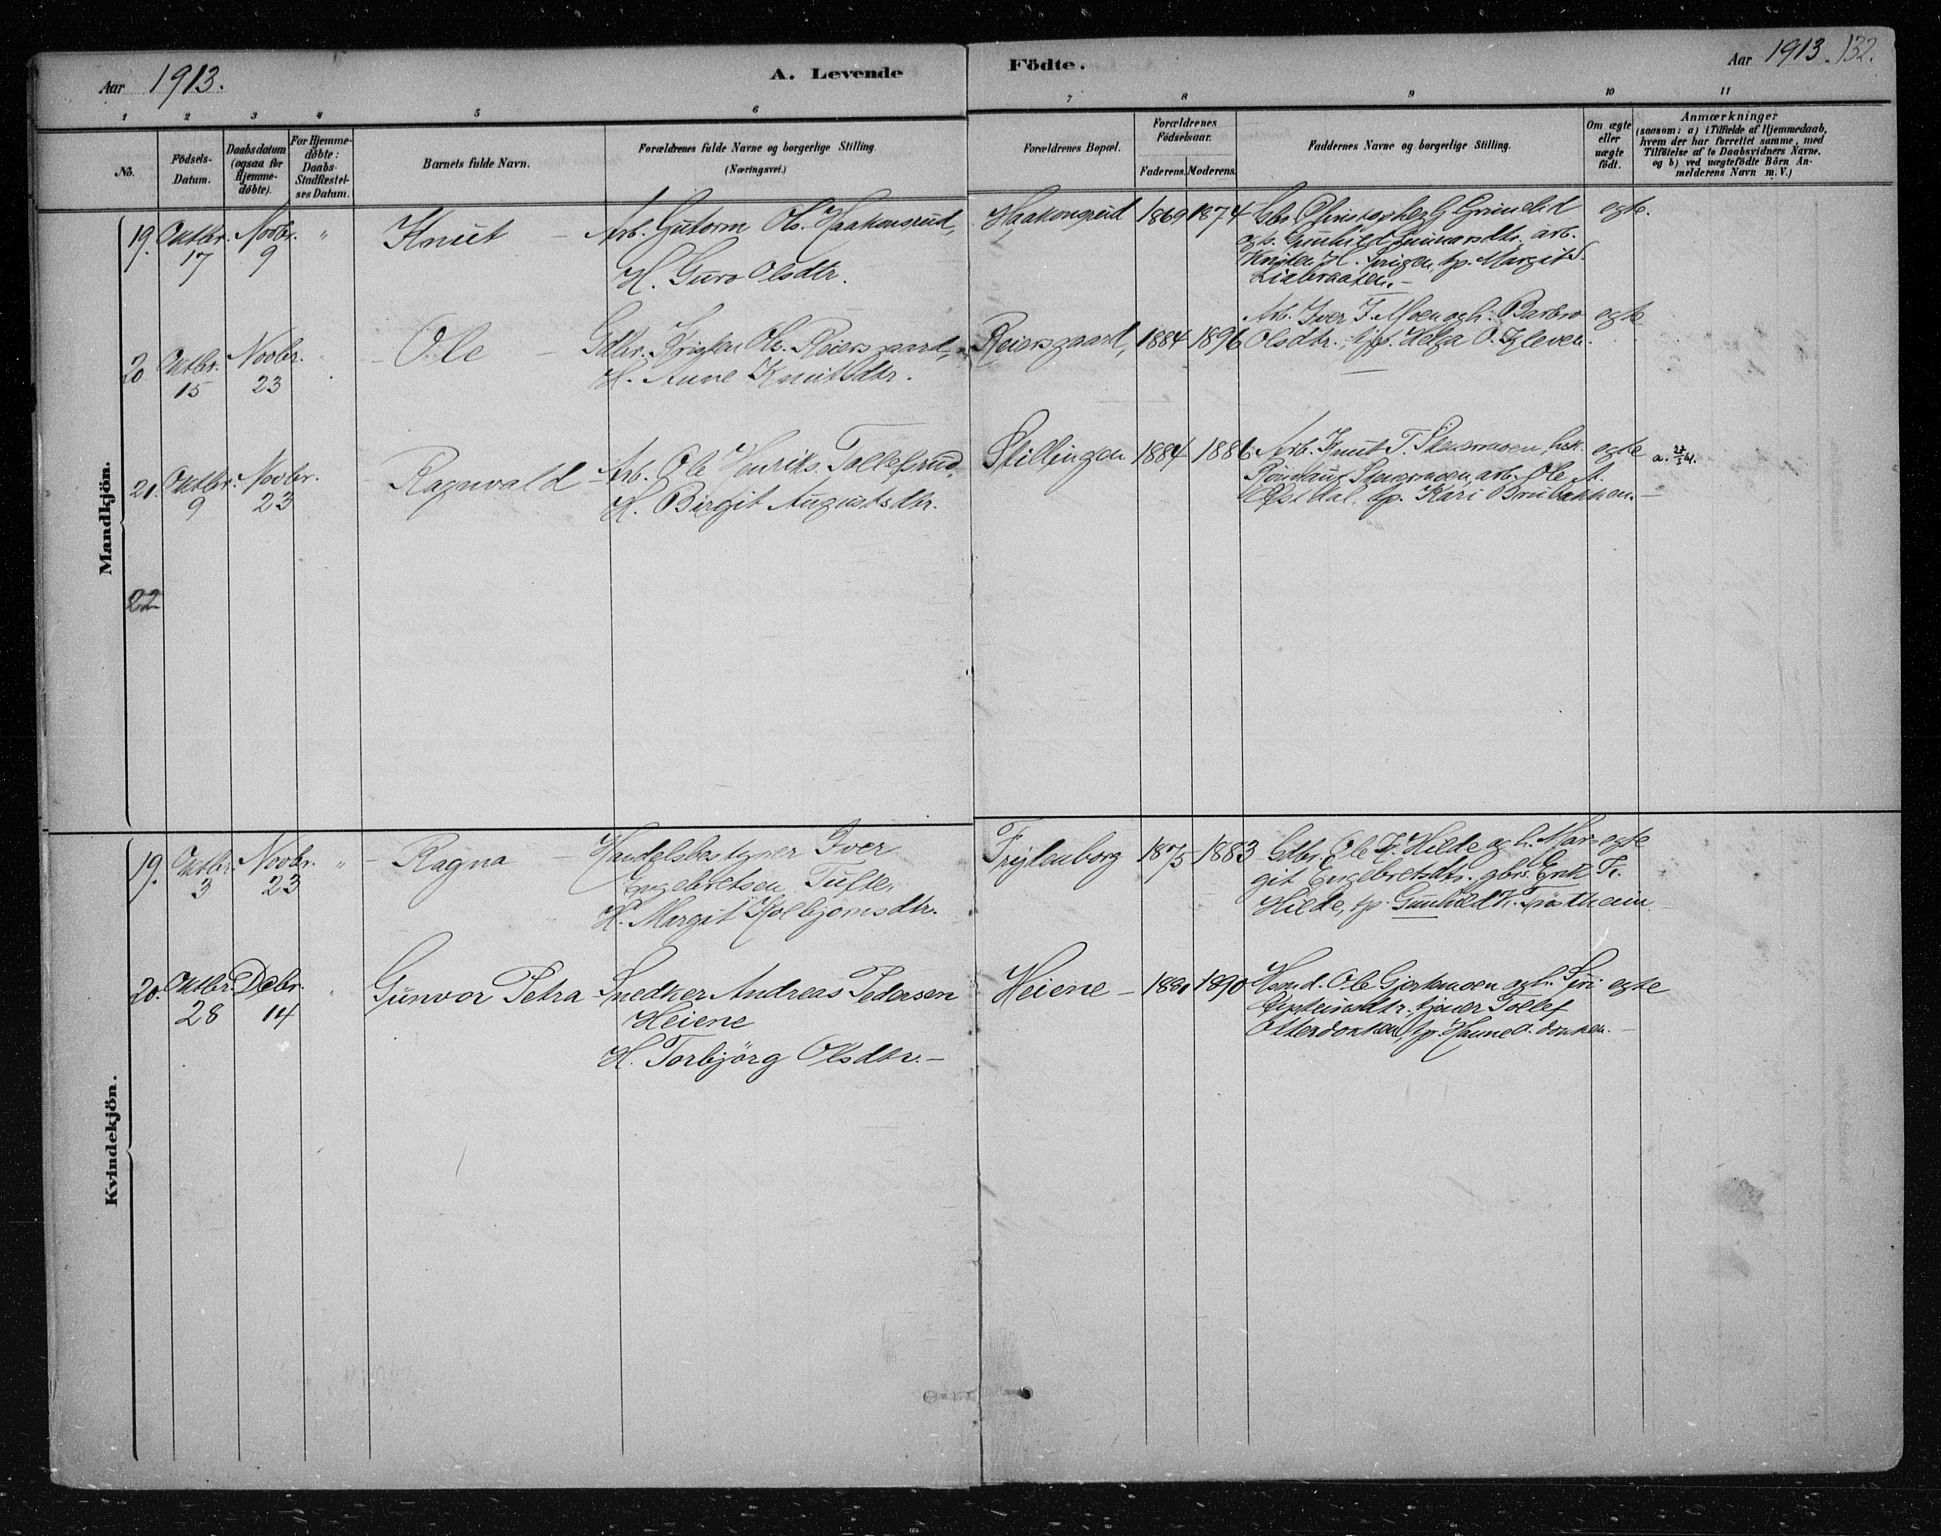 Aar 1913.
A. Levende
Födte.
Aar 1913. 132.
1 2 3 4 5 6 7 8 9 10 11
No.
Födsels-
Datum.
Daabsdatum
(ogsaa for
Hjemme-
döbte).
For Hjemme-
döbte:
Daabs-
Stadfæstel-
ses Datum.
Barnets fulde Navn.
Forældrenes fulde Navne og borgerlige Stilling.
(Næringsvei.)
Forældrenes Bopæl.
Forældrenes
Födselsaar.
Faderens. Moderens.
Faddernes Navne og borgerlige Stilling.
Om ægte
eller
uægte
födt.
Anmærkninger
(saasom: a) i Tilfælde af Hjemmedaab,
hvem der har forrettet samme, med
Tilföielse af to Daabsvidners Navne,
og b) ved uægtefödte Börn An-
melderens Navn m. V.)
Mandkjön.
19. Oktbr. 17 Novbr. 9 " Knut
Arb. Gutorm Ols. Haakonsrud,
H. Guro Olsdtr.
Haakonsrud 1869 1874
Gunhild Gunnarsdtr. arb.
Margit
egte.
20 Oktbr. 15 Novbr. 23 Ole
Gdbr. Kristen Ols. Reiersgaard,
H. Anne Knutsdtr.
Reiersgaard, 1884 1896
Arb. Iver T. Moen og h. Barbro
Olsdtr., tjp. Helga O. Kleven.
egte
21. Oktbr. 9 Novbr. 23 Ragnvald
Arb. Ole Henriks. Tollefsrud,
H. Birgit Augustsdtr.
Stillingen 1884 1886
Arb. Knut T.
arb. Ole A.
Kari Brubakken.
egte
22
Kvindekjön.
19. Oktbr. 3 Novbr. 23 " Ragna
Handelsbestyrer Iver
Engebretsen Tufte,
H. Margit Kolbjörnsdtr.
1875 1883
Gdbr. Ole K. Hilde og h. Mar-
git Engebretsdtr. gbrs. Erik T.
Hilde, tp. Gunhild K. Tröstheim
egte
20. Oktbr. 28 Debr. 14 Gunvor Petra
Snedker Andreas Pedersen
Heiene
H. Torbjörg Olsdtr.
Heiene 1890
Ole
egte